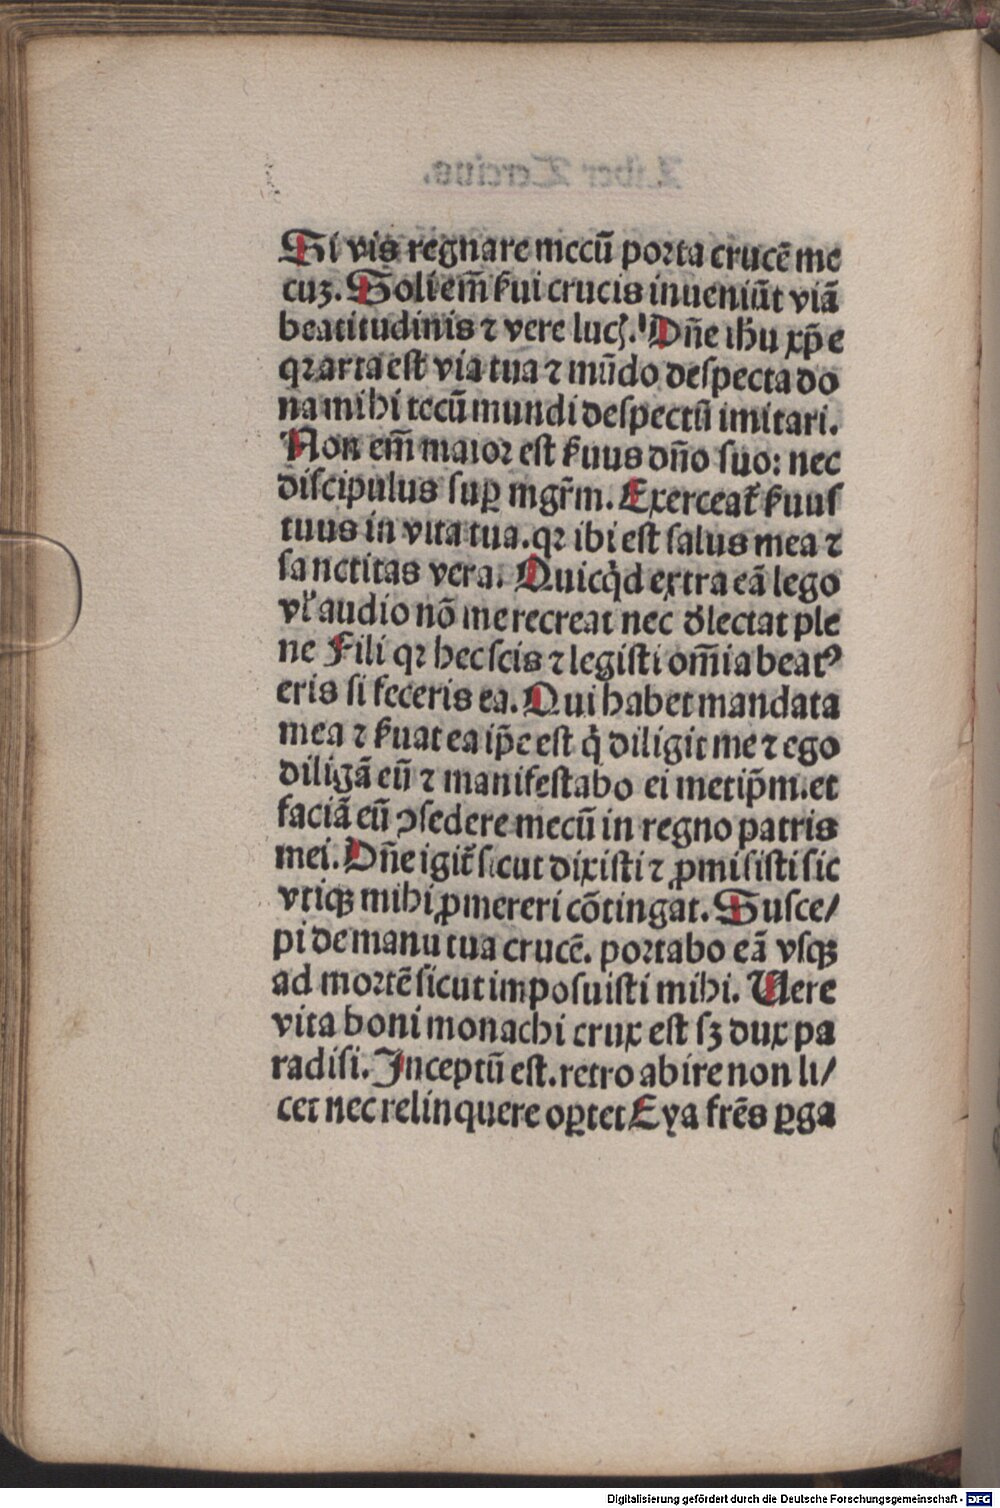 Si vis regnare mecū porta crucē me
cuꝫ. Soli em̄ ẜui crucis inueniūt viā
beatitudinis ⁊ vere lucꝭ. Dn̄e ihu xp̄e
qꝛ arta est via tua ⁊ mūdo despecta do
na mihi tecū mundi despectū imitari.
Non em̄ maior est ẜuus dn̄o suo: nec
discipulus suꝑ mgr̄m. Exerceat᷑ ẜuus
tuus in vita tua. qꝛ ibi est salus mea ⁊
sanctitas vera. Quicqͥd extra eā lego
vl̓ audio nō me recreat nec d̓lectat ple
ne Fili qꝛ hec scis ⁊ legisti om̄ia beatꝰ
eris si feceris ea. Qui habet mandata
mea ⁊ ẜuat ea ip̄e est qͥ diligit me ⁊ ego
diligā eū ⁊ manifestabo ei metip̄m. et
faciā eū ꝯsedere mecū in regno patris
mei. Dn̄e igit᷑ sicut dixisti ⁊ ꝓmisisti sic
vtiqꝫ mihi ꝓmereri cōtingat. Susce/
pi de manu tua crucē. portabo eā vsqꝫ
ad mortē sicut imposuisti mihi. Vere
vita boni monachi crux est sꝫ dux pa
radisi. Inceptū est. retro abire non li/
cet nec relinquere oꝑtet Eya frēs ꝑga
Digitalisierung gefördert durch die Deutsche Forschungsgemeinschaft - DFG